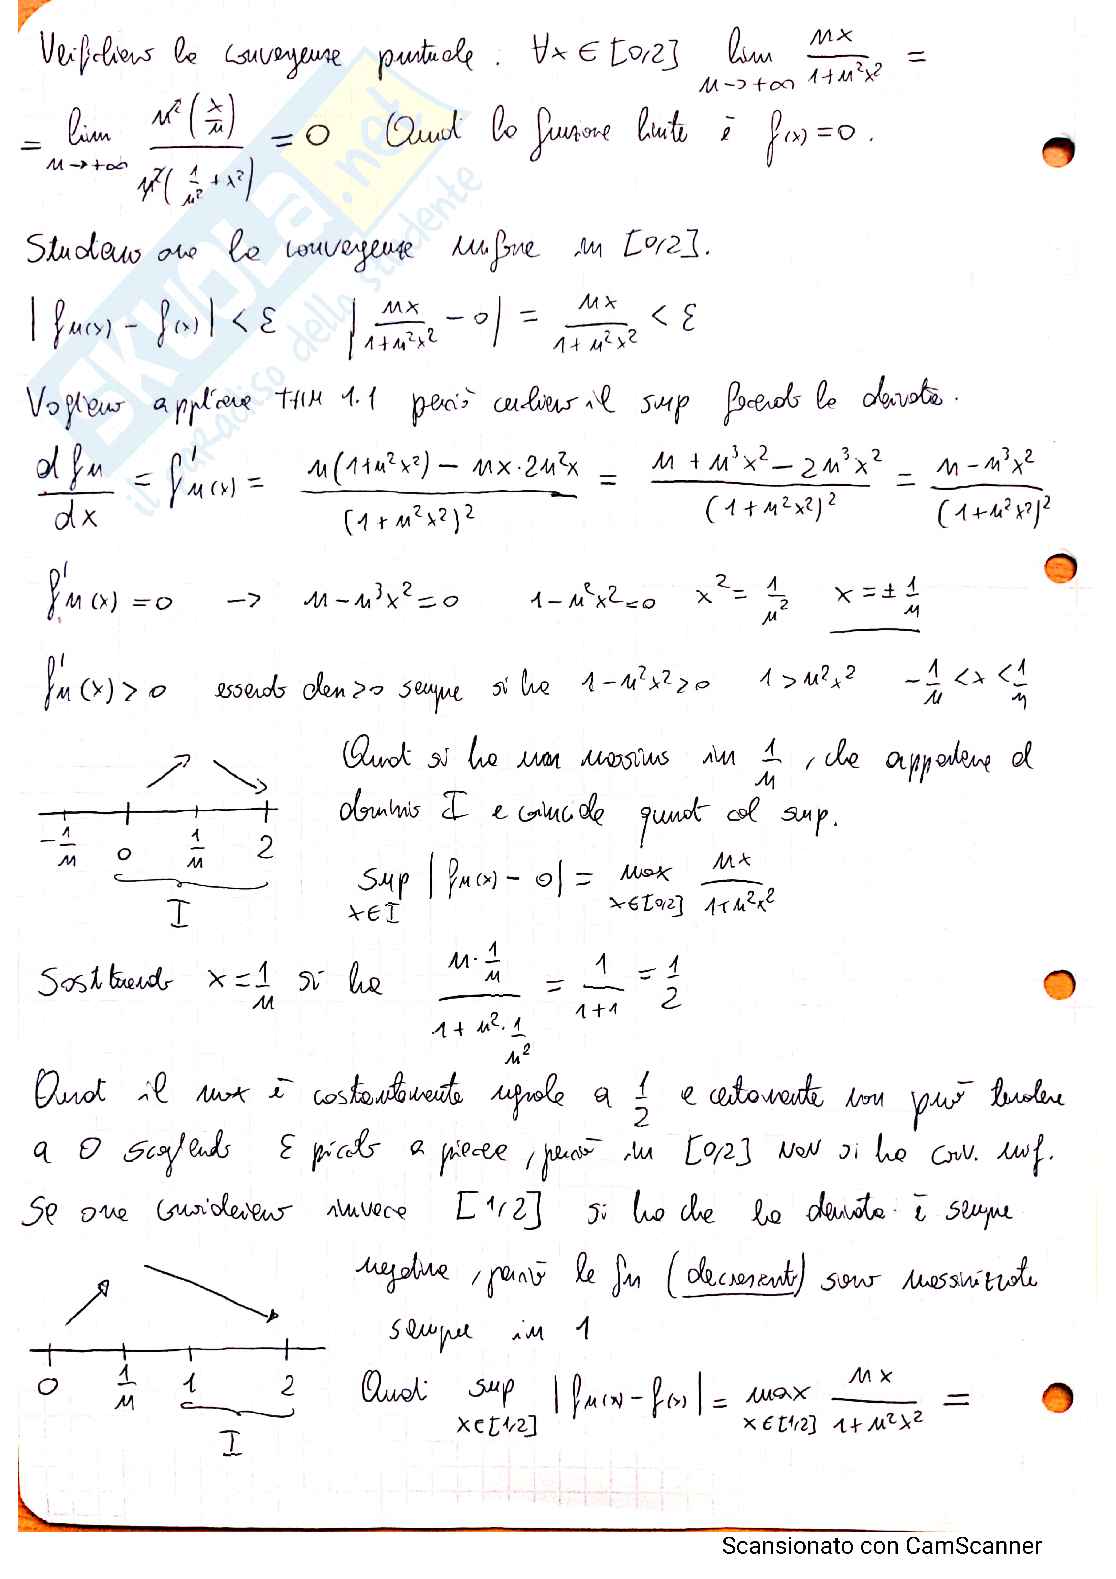 Verifichiamo la convergenza puntuale. ∀x ∈ [0,2] lim n→+∞ nx/(1+n²x²) =
= lim n→+∞ n²(x/n) / n²(1/n² + x²) = 0 Quindi la funzione limite è f(x) = 0.
Studiamo ora la convergenza uniforme in [0,2].
|fn(x) - f(x)| < ε |nx/(1+n²x²) - 0| = nx/(1+n²x²) < ε
Vogliamo applicare THM 1.1 perciò cerchiamo il sup facendo la derivata.
dfn/dx = f'n(x) = (n(1+n²x²) - nx·2n²x)/(1+n²x²)² = (n + n³x² - 2n³x²)/(1+n²x²)² = (n - n³x²)/(1+n²x²)²
f'n(x) = 0 -> n - n³x² = 0 1 - n²x² = 0 x² = 1/n² x = ± 1/n
f'n(x) > 0 essendo den > 0 sempre si ha 1 - n²x² > 0 1 > n²x² -1/n < x < 1/n
Quindi si ha un massimo in 1/n, che appartiene al
dominio I e coincide quindi col sup.
-1/n 0 1/n 2
I
sup x∈I |fn(x) - 0| = max x∈[0,2] nx/(1+n²x²)
Sostituendo x = 1/n si ha (n·1/n)/(1+n²·1/n²) = 1/(1+1) = 1/2
Quindi il max è costantemente uguale a 1/2 e certamente non può tendere
a 0 scegliendo ε piccolo a piacere, perciò in [0,2] NON si ha conv. unif.
Se ora consideriamo invece [1,2] si ha che la derivata è sempre
negativa, perciò le fn (decrescenti) sono massimizzate
sempre in 1
0 1/n 1 2
I
Quindi sup x∈[1,2] |fn(x) - f(x)| = max x∈[1,2] nx/(1+n²x²) =
SKUOLA.net
il paradiso dello studente
Scansionato con CamScanner